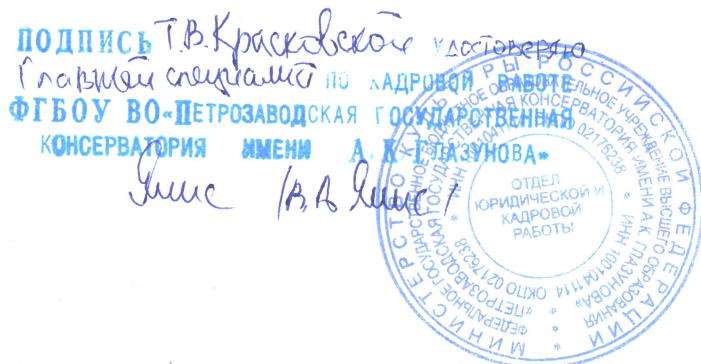 ПОДПИСЬ Т.В. Красковской удостоверяю
Главный специалист ПО КАДРОВОЙ РАБОТЕ
ФГБОУ ВО «ПЕТРОЗАВОДСКАЯ ГОСУДАРСТВЕННАЯ
КОНСЕРВАТОРИЯ ИМЕНИ А.К. ГЛАЗУНОВА»
/В.А.
МИНИСТЕРСТВО КУЛЬТУРЫ РОССИЙСКОЙ ФЕДЕРАЦИИ
ФЕДЕРАЛЬНОЕ ГОСУДАРСТВЕННОЕ БЮДЖЕТНОЕ ОБРАЗОВАТЕЛЬНОЕ УЧРЕЖДЕНИЕ ВЫСШЕГО ОБРАЗОВАНИЯ
«ПЕТРОЗАВОДСКАЯ ГОСУДАРСТВЕННАЯ КОНСЕРВАТОРИЯ ИМЕНИ А.К. ГЛАЗУНОВА»
* ИНН 1001041114 ОКПО 02176238 *
ОТДЕЛ
ЮРИДИЧЕСКОЙ И
КАДРОВОЙ
РАБОТЫ